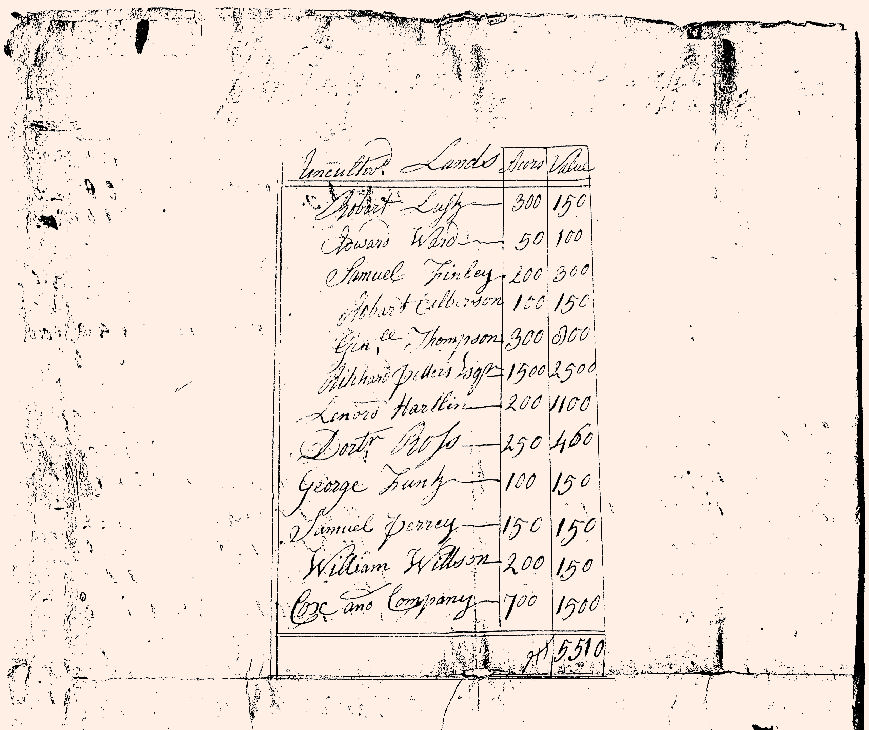 Uncultivd. Lands Acres Value
Robert Lusk 300 150
Edward Ward 50 100
Samuel Finley 200 300
Robert Culberson 100 150
Gen.ll Thompson 300 800
Richard Peters Esqr 1500 2500
Lenord Hartlin 200 1100
Doctr. Ross 250 460
George Kuntz 100 150
Samuel Perrey 150 150
William Willson 200 150
Cox and Company 700 1500
5510